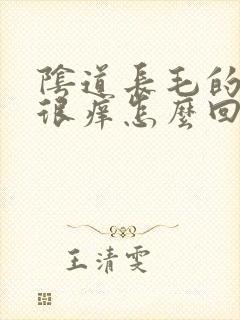 陰道長毛的
很癢怎麼回
王清雯